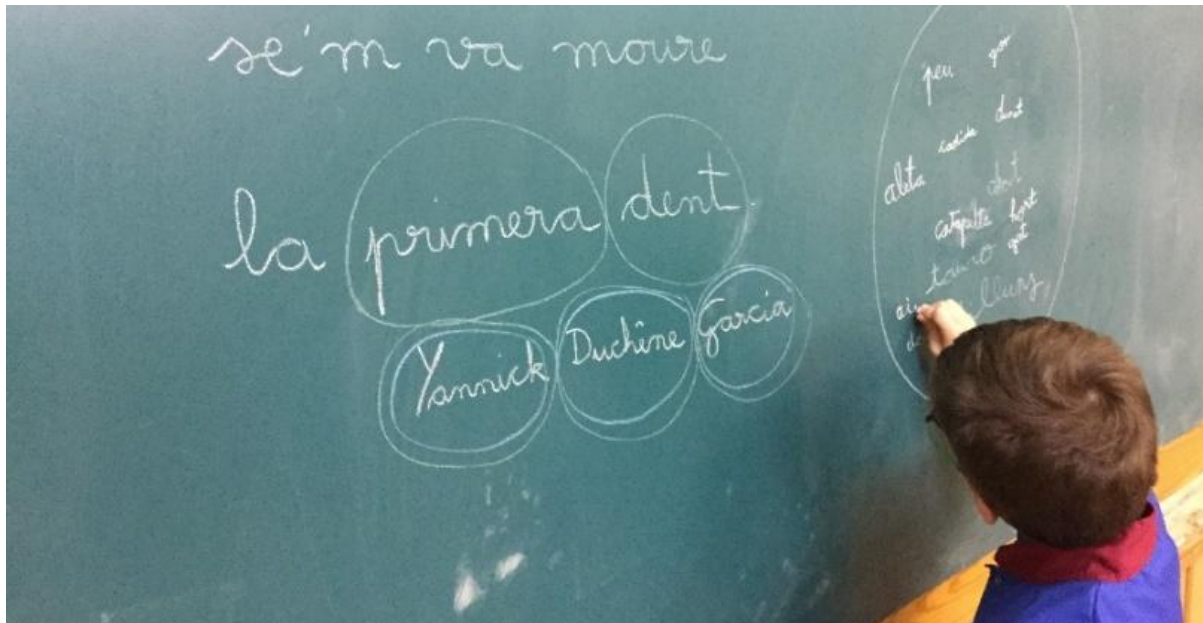 se'm va moure
la primera dent
Yannick Duchêne Garcia
peu
aleta dent
dent
catapulta hort
tauró
lluny